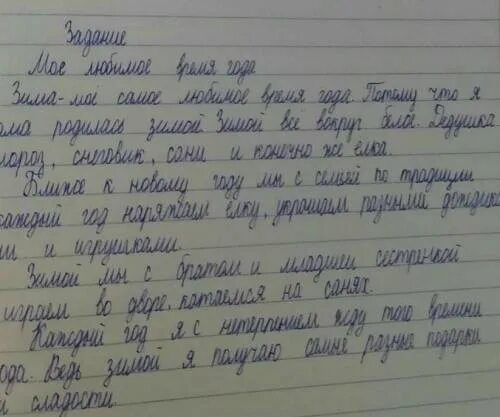 Задание
Мое любимое время года
Зима-моё самое любимое время года. Потому что я
ома родилась зимой. Зимой всё вокруг белое. Дедушка
мороз, снеговик, сани и конечно же елка.
Ближе к новому году мы с семьёй по традиции
каждый год наряжаем ёлку, украшаем разными дождика
ми и игрушками.
Зимой мы с братом и младшей сестренкой
играем во дворе, катаемся на санях.
Каждый год я с нетерпением жду того времени
года. Ведь зимой я получаю самые разные подарки
и сладости.